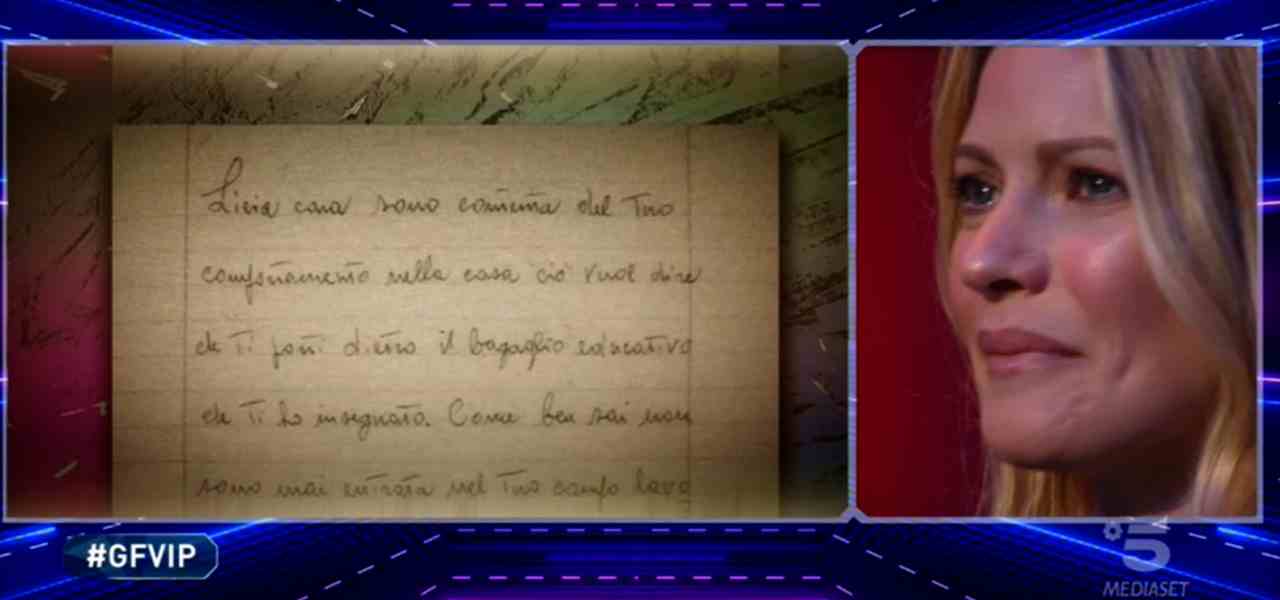 Licia cara sono contenta del Tuo
comportamento nella casa ciò vuol dire
che Ti porti dietro il bagaglio educativo
che Ti ho insegnato. Come ben sai non
sono mai entrata nel Tuo campo lavo
#GFVIP
5
MEDIASET